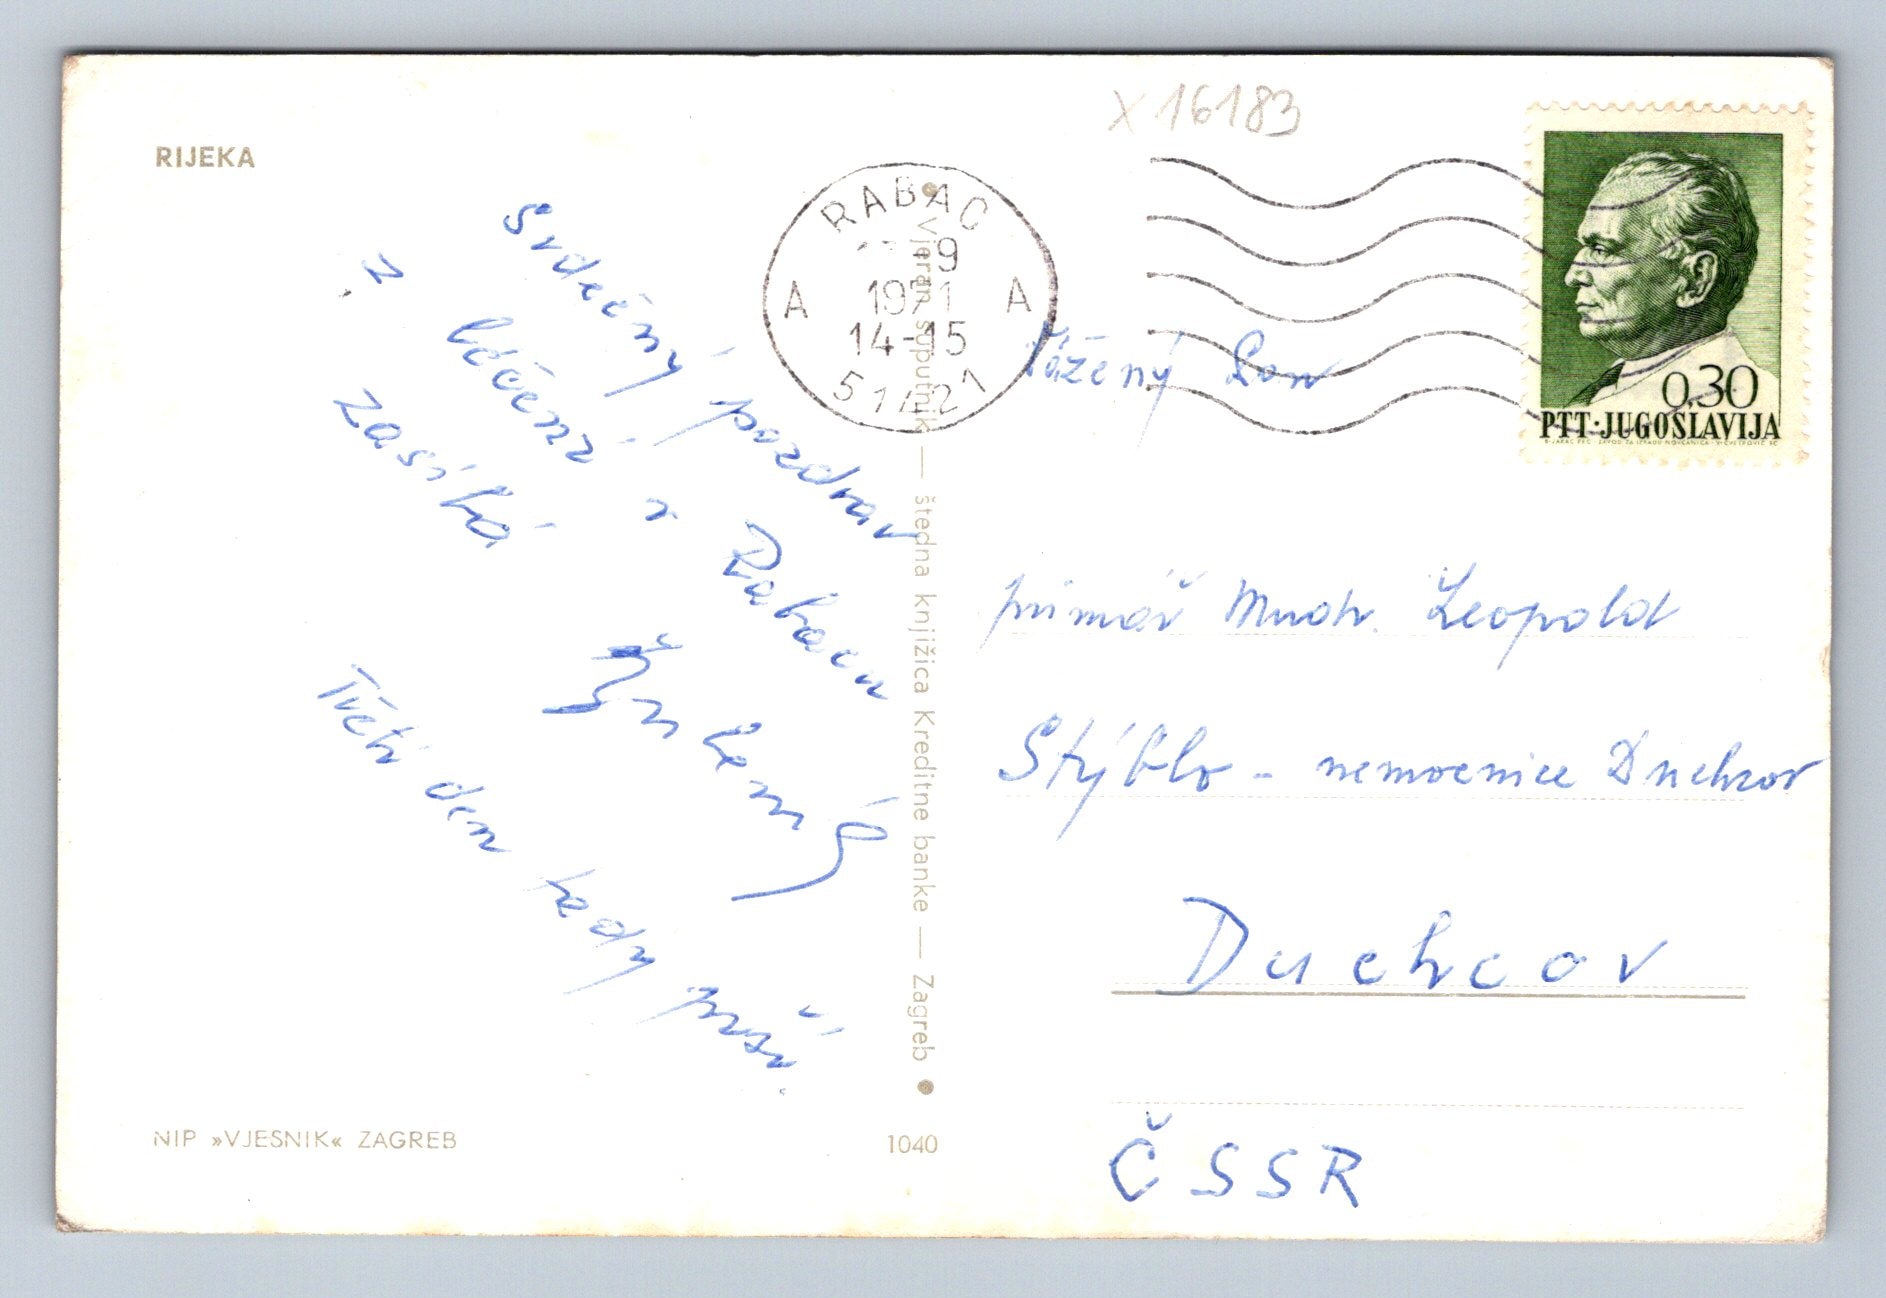 RIJEKA
X 16183
Srdečný pozdrav
z léčení v Rabacu
zasílá
Třetí den tady prší.
NIP »VJESNIK« ZAGREB
RABAC
9
1971
A A
14-15
51421
Vjeran suputnik — štedna knjižica Kreditne banke — Zagreb
1040
0,30
PTT·JUGOSLAVIJA
Vážený Pan
primář Mudr. Leopold
Stýblo - nemocnice Duchcov
Duchcov
ČSSR